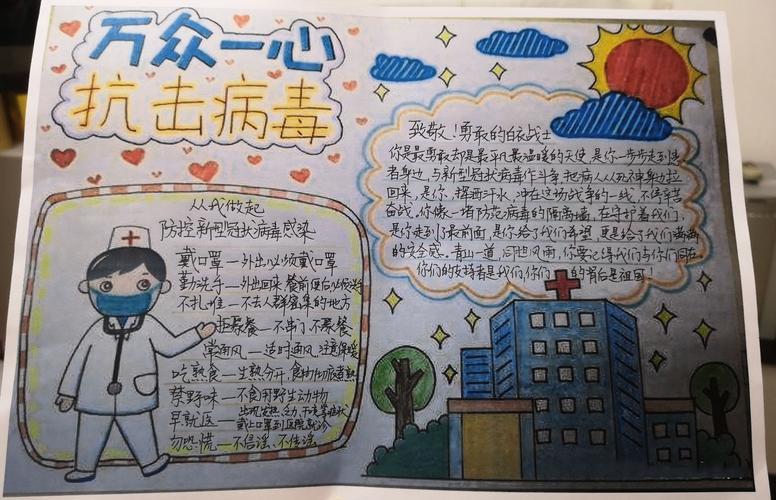 万众一心
抗击病毒
从我做起
防控新型冠状病毒感染
戴口罩—外出必须戴口罩
勤洗手—外出回来 餐前便后必须洗手
不扎堆—不去人群密集的地方
拒聚餐—不串门 不聚餐
常通风—适时通风,注意保暖
吃熟食—生熟分开,食物煮熟
禁野味—不食用野生动物
早就医—出现发热、乏力、干咳等症状
戴上口罩到医院就诊
勿恐慌—不信谣、不传谣
致敬!勇敢的白衣战士
你是最勇敢却是最平凡最温暖的天使,是你一步步走到患
者身边,与新型冠状病毒作斗争,把病人从死神身边拉
回来,是你,挥洒汗水,冲在这场战争的一线,不停辛苦
奋战。你像一堵防范病毒的隔离墙,在守护着我们,
是你走到了最前面,是你给了我们希望,更是给了我们满满
的安全感。青山一道,同担风雨,你要记得我们与你们同在
你们的支持者是我们,你们的背后是祖国!